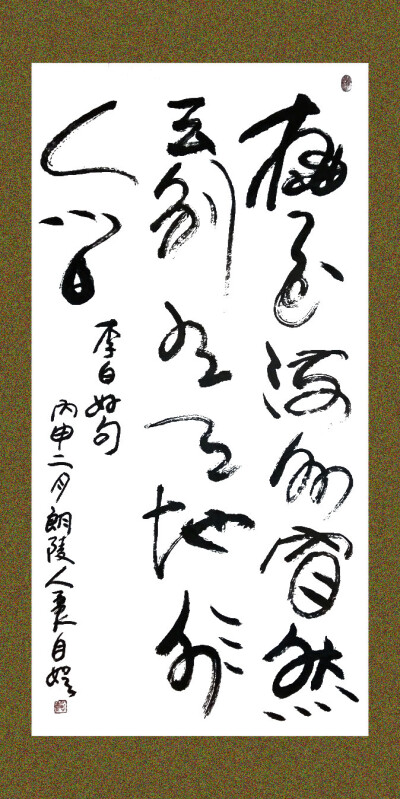 桃花流水窅然
去别有天地非
人间
李白好句
丙申二月朗陵人自娱